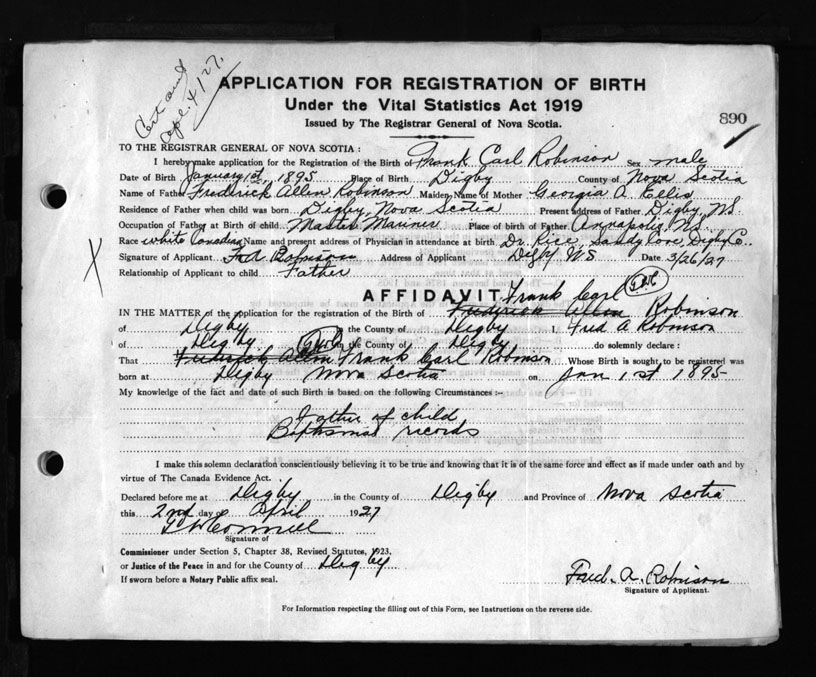 Cert and
Apl. 4/27.
APPLICATION FOR REGISTRATION OF BIRTH
Under the Vital Statistics Act 1919
Issued by The Registrar General of Nova Scotia.
890
TO THE REGISTRAR GENERAL OF NOVA SCOTIA :
I hereby make application for the Registration of the Birth of Frank Carl Robinson Sex male
Date of Birth January 1st, 1895 Place of Birth Digby County of Nova Scotia
Name of Father Frederick Allen Robinson Maiden Name of Mother Georgia A Ellis
Residence of Father when child was born Digby, Nova Scotia Present address of Father Digby, N.S.
Occupation of Father at Birth of child Master Mariner Place of birth of Father Annapolis, N.S.
Race white Canadian Name and present address of Physician in attendance at birth Dr. Rice, Sandy Cove, Digby Co.
Signature of Applicant Fred Robinson Address of Applicant Digby N S Date 3/26/27
Relationship of Applicant to child Father
AFFIDAVIT Frank Carl
IN THE MATTER of the application for the registration of the Birth of Frederick Allen Robinson
of Digby the County of Digby I, Fred A Robinson
of Digby in the County of Digby do solemnly declare :
That Frederick Allen Frank Carl Robinson Whose Birth is sought to be registered was
born at Digby Nova Scotia on Jan 1st 1895
My knowledge of the fact and date of such Birth is based on the following Circumstances :-
Father of child
Baptismal records
I make this solemn declaration conscientiously believing it to be true and knowing that it is of the same force and effect as if made under oath and by
virtue of The Canada Evidence Act.
Declared before me at Digby in the County of Digby and Province of Nova Scotia
this 2nd day of April 1927
Signature of
Commissioner under Section 5, Chapter 38, Revised Statutes, 1923.
or Justice of the Peace in and for the County of Digby
If sworn before a Notary Public affix seal.
Fred. A. Robinson
Signature of Applicant.
For Information respecting the filling out of this Form, see Instructions on the reverse side.